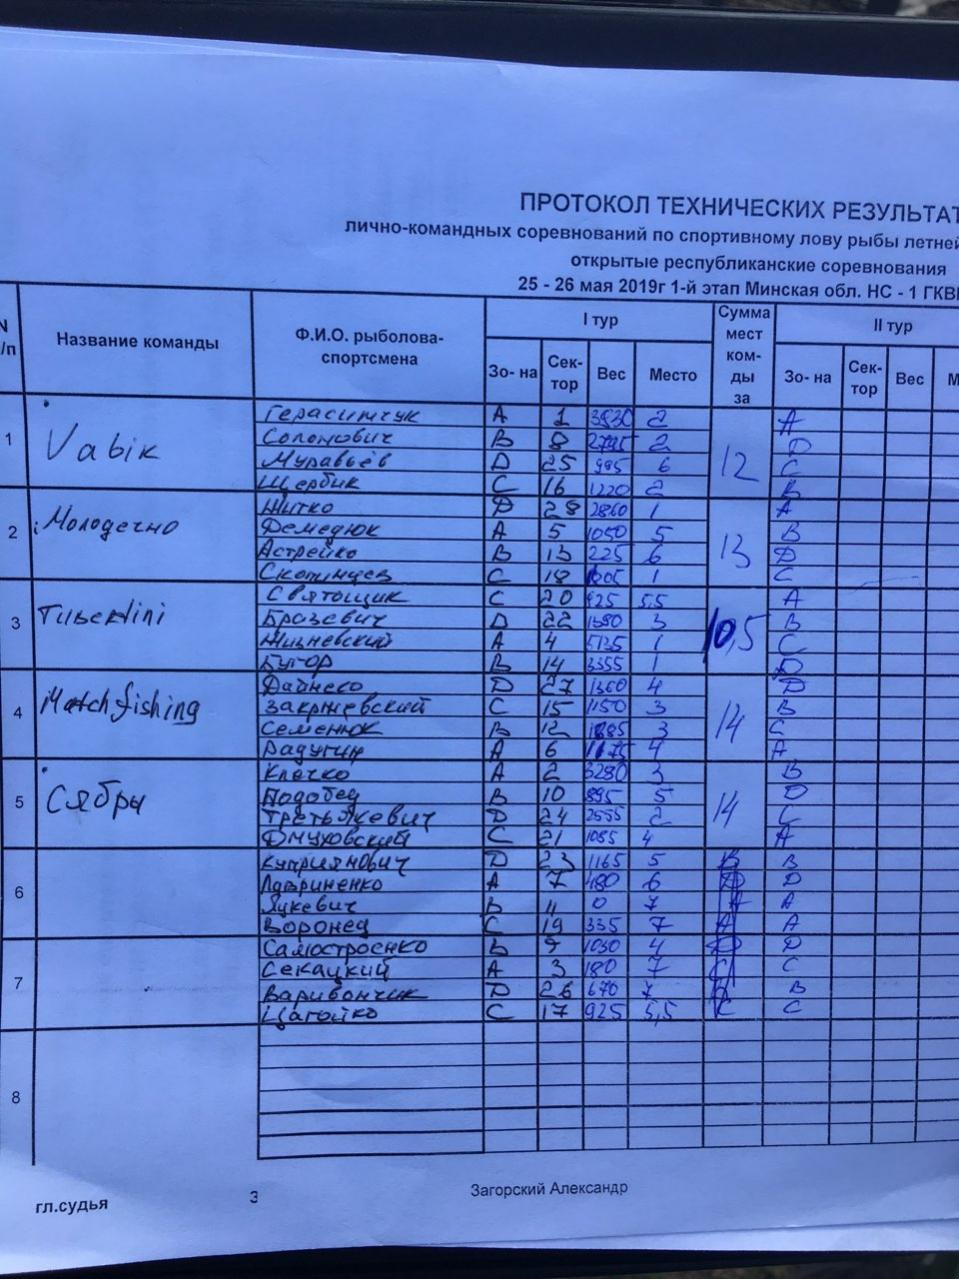 ПРОТОКОЛ ТЕХНИЧЕСКИХ РЕЗУЛЬТАТ
лично-командных соревнований по спортивному лову рыбы летней
открытые республиканские соревнования
25 - 26 мая 2019г 1-й этап Минская обл. НС - 1 ГКВ
N /п Название команды Ф.И.О. рыболова-спортсмена I тур Сумма мест ком-ды за II тур
Зо- на Сек-тор Вес Место Зо- на Сек-тор Вес М
1 Vabik 12
Герасимчук A 1 3830 2 A
Соломович B 8 2 D
Муравьёв D 25 995 6 C
Щербик C 16 1220 2 B
2 Молодечно 13
Житко D 28 2860 1 A
Демедюк A 5 1050 5 B
Астрейко B 13 225 6 D
Скопинцев C 18 1 C
3 Tubertini 10,5
Святощик C 20 925 5,5 A
Бразевич D 22 3 B
Жизневский A 4 5135 1 C
Бугор B 14 3355 1 D
4 Matchfishing 14
Дайнеко D 27 1360 4 D
Закржевский C 15 1150 3 B
Семенюк B 12 3 C
Радугин A 6 4 A
5 Сябры 14
Клочко A 2 3280 3 B
Подобед B 10 895 5 D
Третьякевич D 24 2555 2 C
Дмуховский C 21 1085 4 A
6
Куприянович D 23 1165 5 B
Лавриненко A 7 480 6 D
Лукевич B 11 0 7 A
Воронец C 19 335 7 A
7
Самостроенко B 9 1030 4 D
Секацкий A 3 180 7 C
Варивончик D 26 670 7 B
Цагойко C 17 925 5,5 C
8
гл.судья 3 Загорский Александр